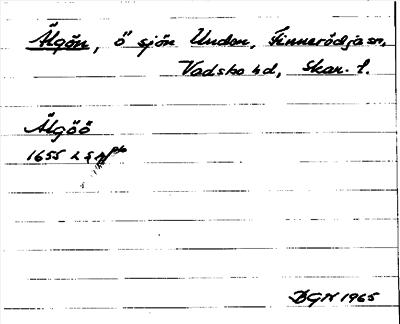 Älgön, ö sjön Unden, Finnerödja sn,
Vadsbo hd, Skar. l.
Älgöö
1655 LSA
BGN 1965